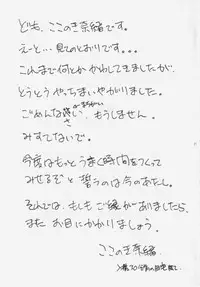 ども、ここのき奈緒です。
えーと… 見てのとおりです。。。
これまで何とかかわしてきましたが、
とうとうやっちまいやがりました。
ごめんなさい。もうしません。
みすてないで。
今度はもっとうまく時間をつくって
みせるぞと誓うのは今のあたし。
それでは、もしもご縁がありましたら、
またお目にかかりましょう。
ここのき奈緒